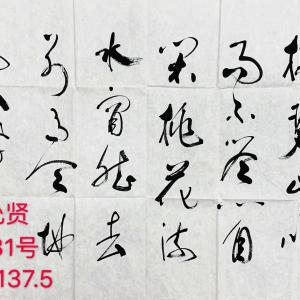 栖碧山笑
而不答心自
闲桃花流
水窅然去
别有天地
贤
31号
137.5